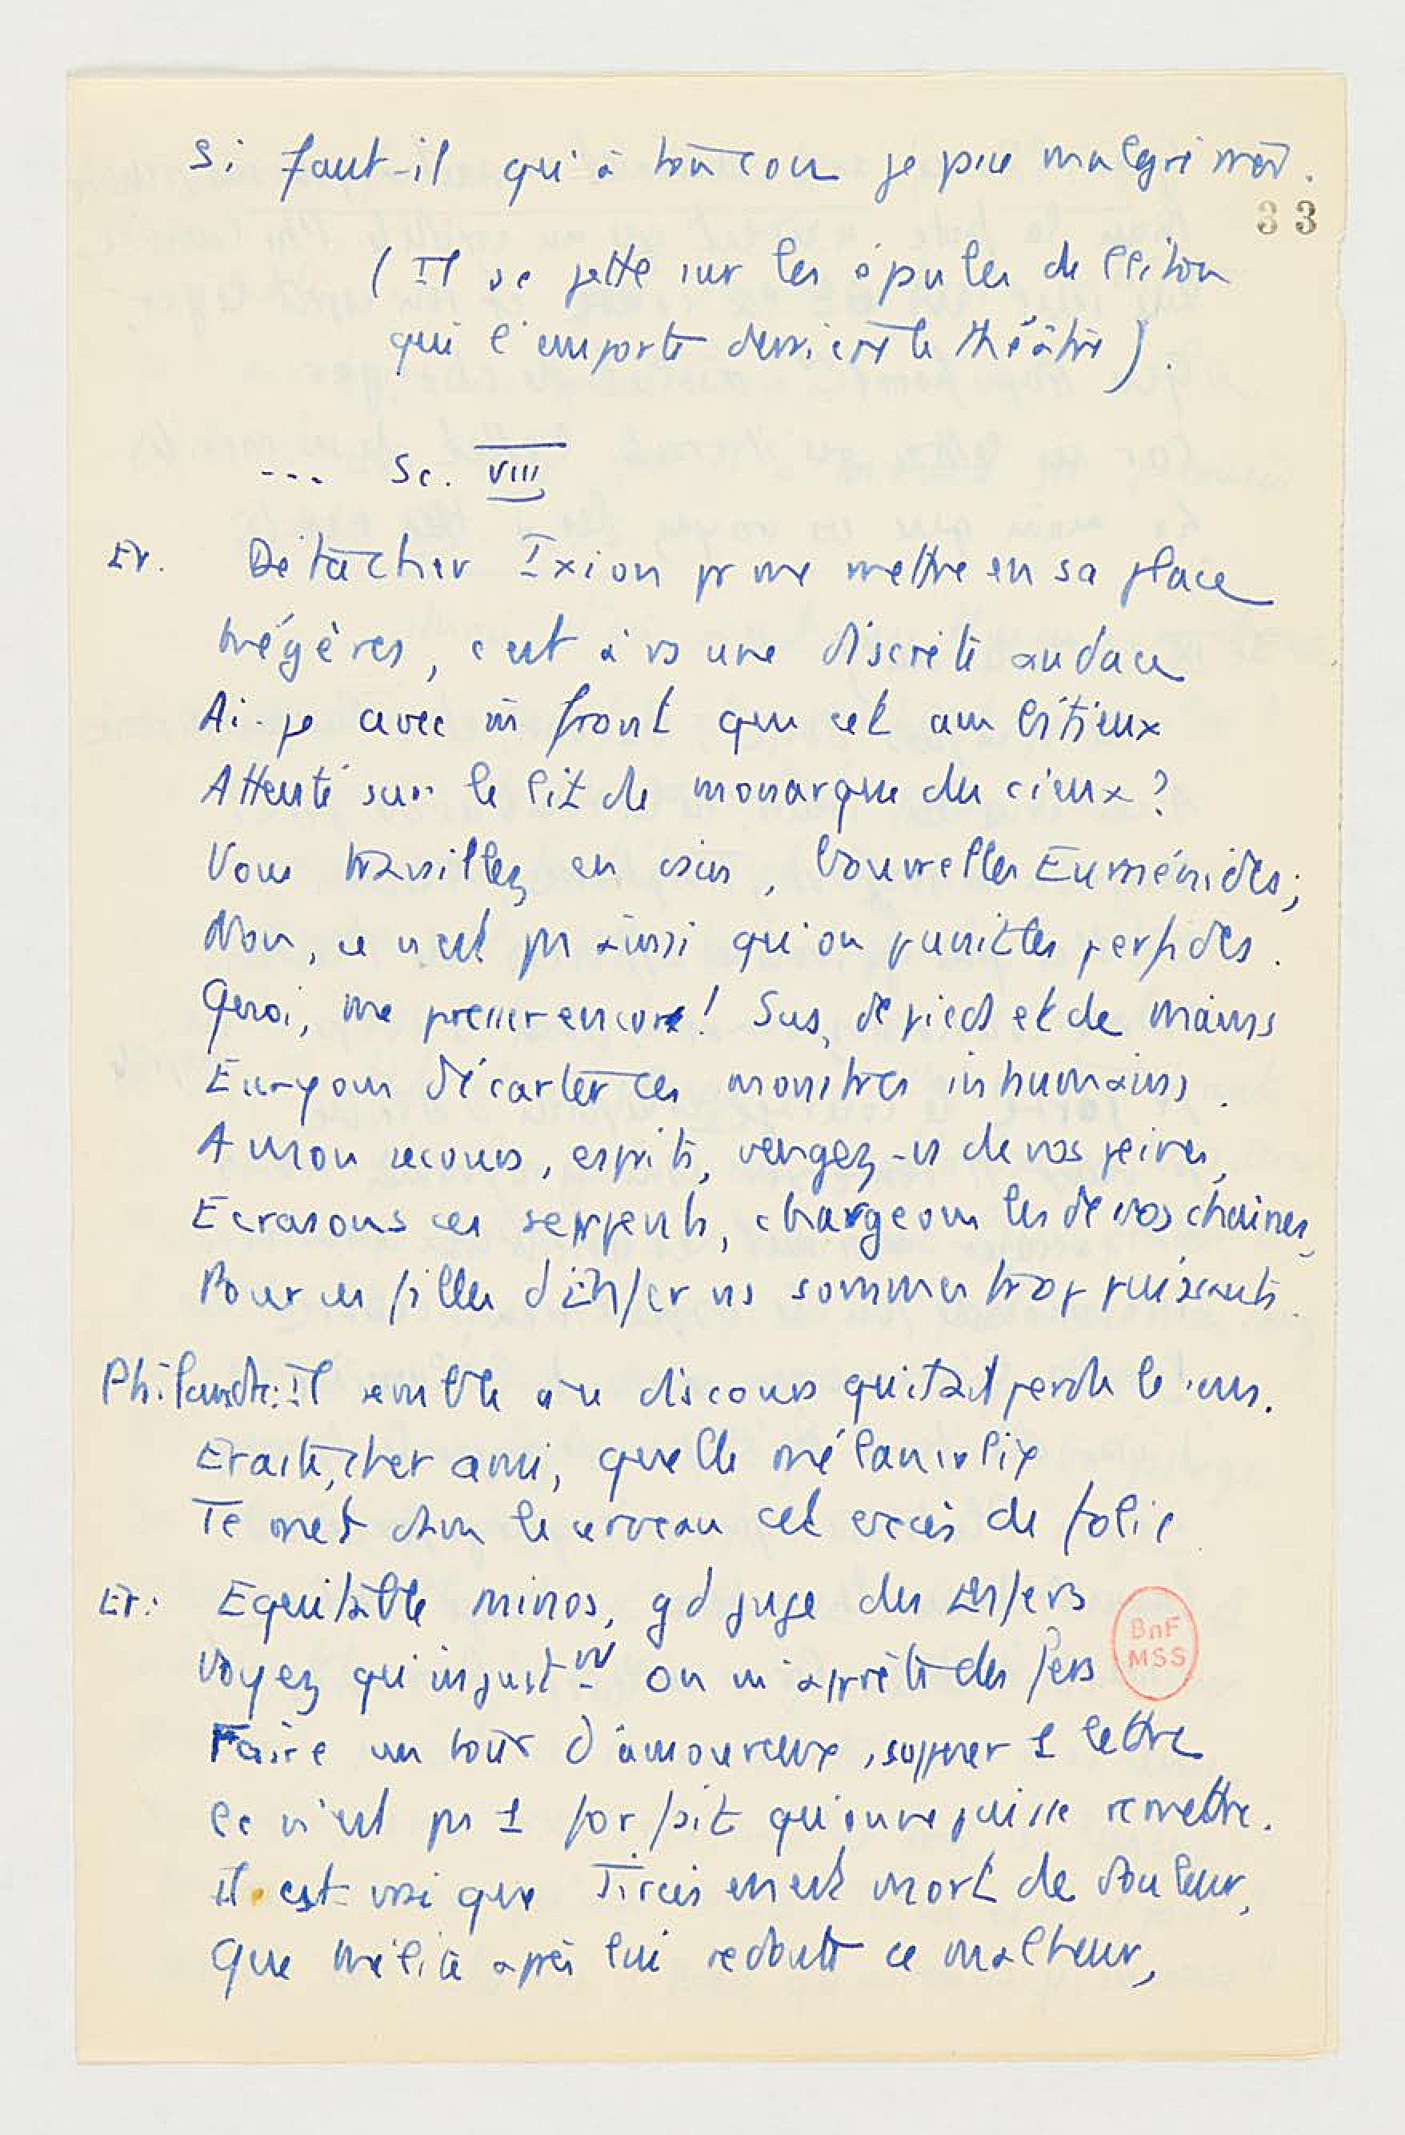 Si faut-il qu'à tour coup je pue malgré moi.
33
(Il se jette sur les épaules de Cliton
qui l'emporte derrière le théâtre).
--- Sc. VIII
Er. Détacher Ixion pr me mettre en sa place
Mégères, c'est à vs une discrète audace
Ai-je avec m̂ front que cet ambitieux
Attenté sur le lit de monarque des cieux ?
Vous travaillez en vain, bourrelles Euménides ;
Non, ce n'est ps ainsi qu'on punit les perfides.
Quoi, me presser encore ! Sus, de pieds et de mains
Essayons d'écarter ces monstres inhumains.
A mon secours, esprits, vengez-vs de vos peines,
Ecrasons ces serpents, chargeons les de vos chaînes,
Pour ces filles d'Enfer ns sommes trop puissants.
Philandre : Il semble à ce discours qu'il ait perdu le sens.
Eraste, cher ami, quelle mélancolie
Te met dans le cerveau cet excès de folie
Er : Equitable Minos, gd juge des Enfers
Voyez qu'injustnt on m'apprête des fers
Faire un tour d'amoureux, supposer 1 lettre
Ce n'est ps 1 forfait qu'on ne puisse remettre.
Il est vrai que Tircis en est mort de douleur,
Que Mélite après lui redouble ce malheur,
BnF
MSS